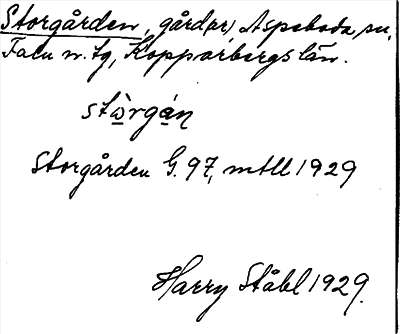 Storgården, gård(ar) Aspeboda sn.
Falu n. tg, Kopparbergs län.
stὼrgán
Storgården G. 97, mtll 1929
Harry Ståhl 1929.